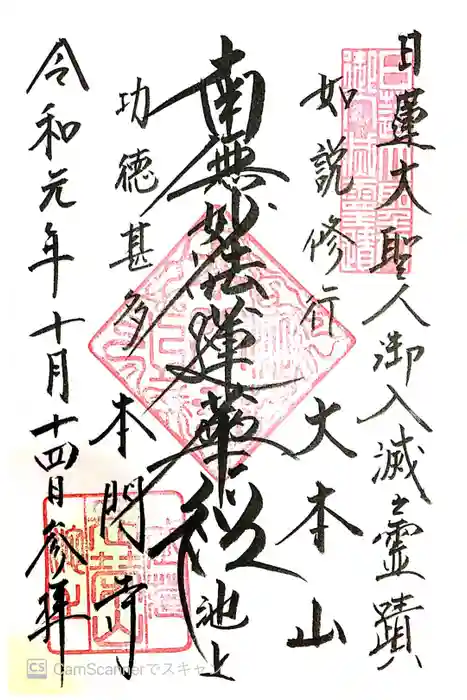 日蓮大聖人御入滅之靈蹟
如説修行
大本山
南無妙法蓮華経
池上
功徳甚多
本門寺
令和元年十月十四日参拝
CS CamScannerでスキャ